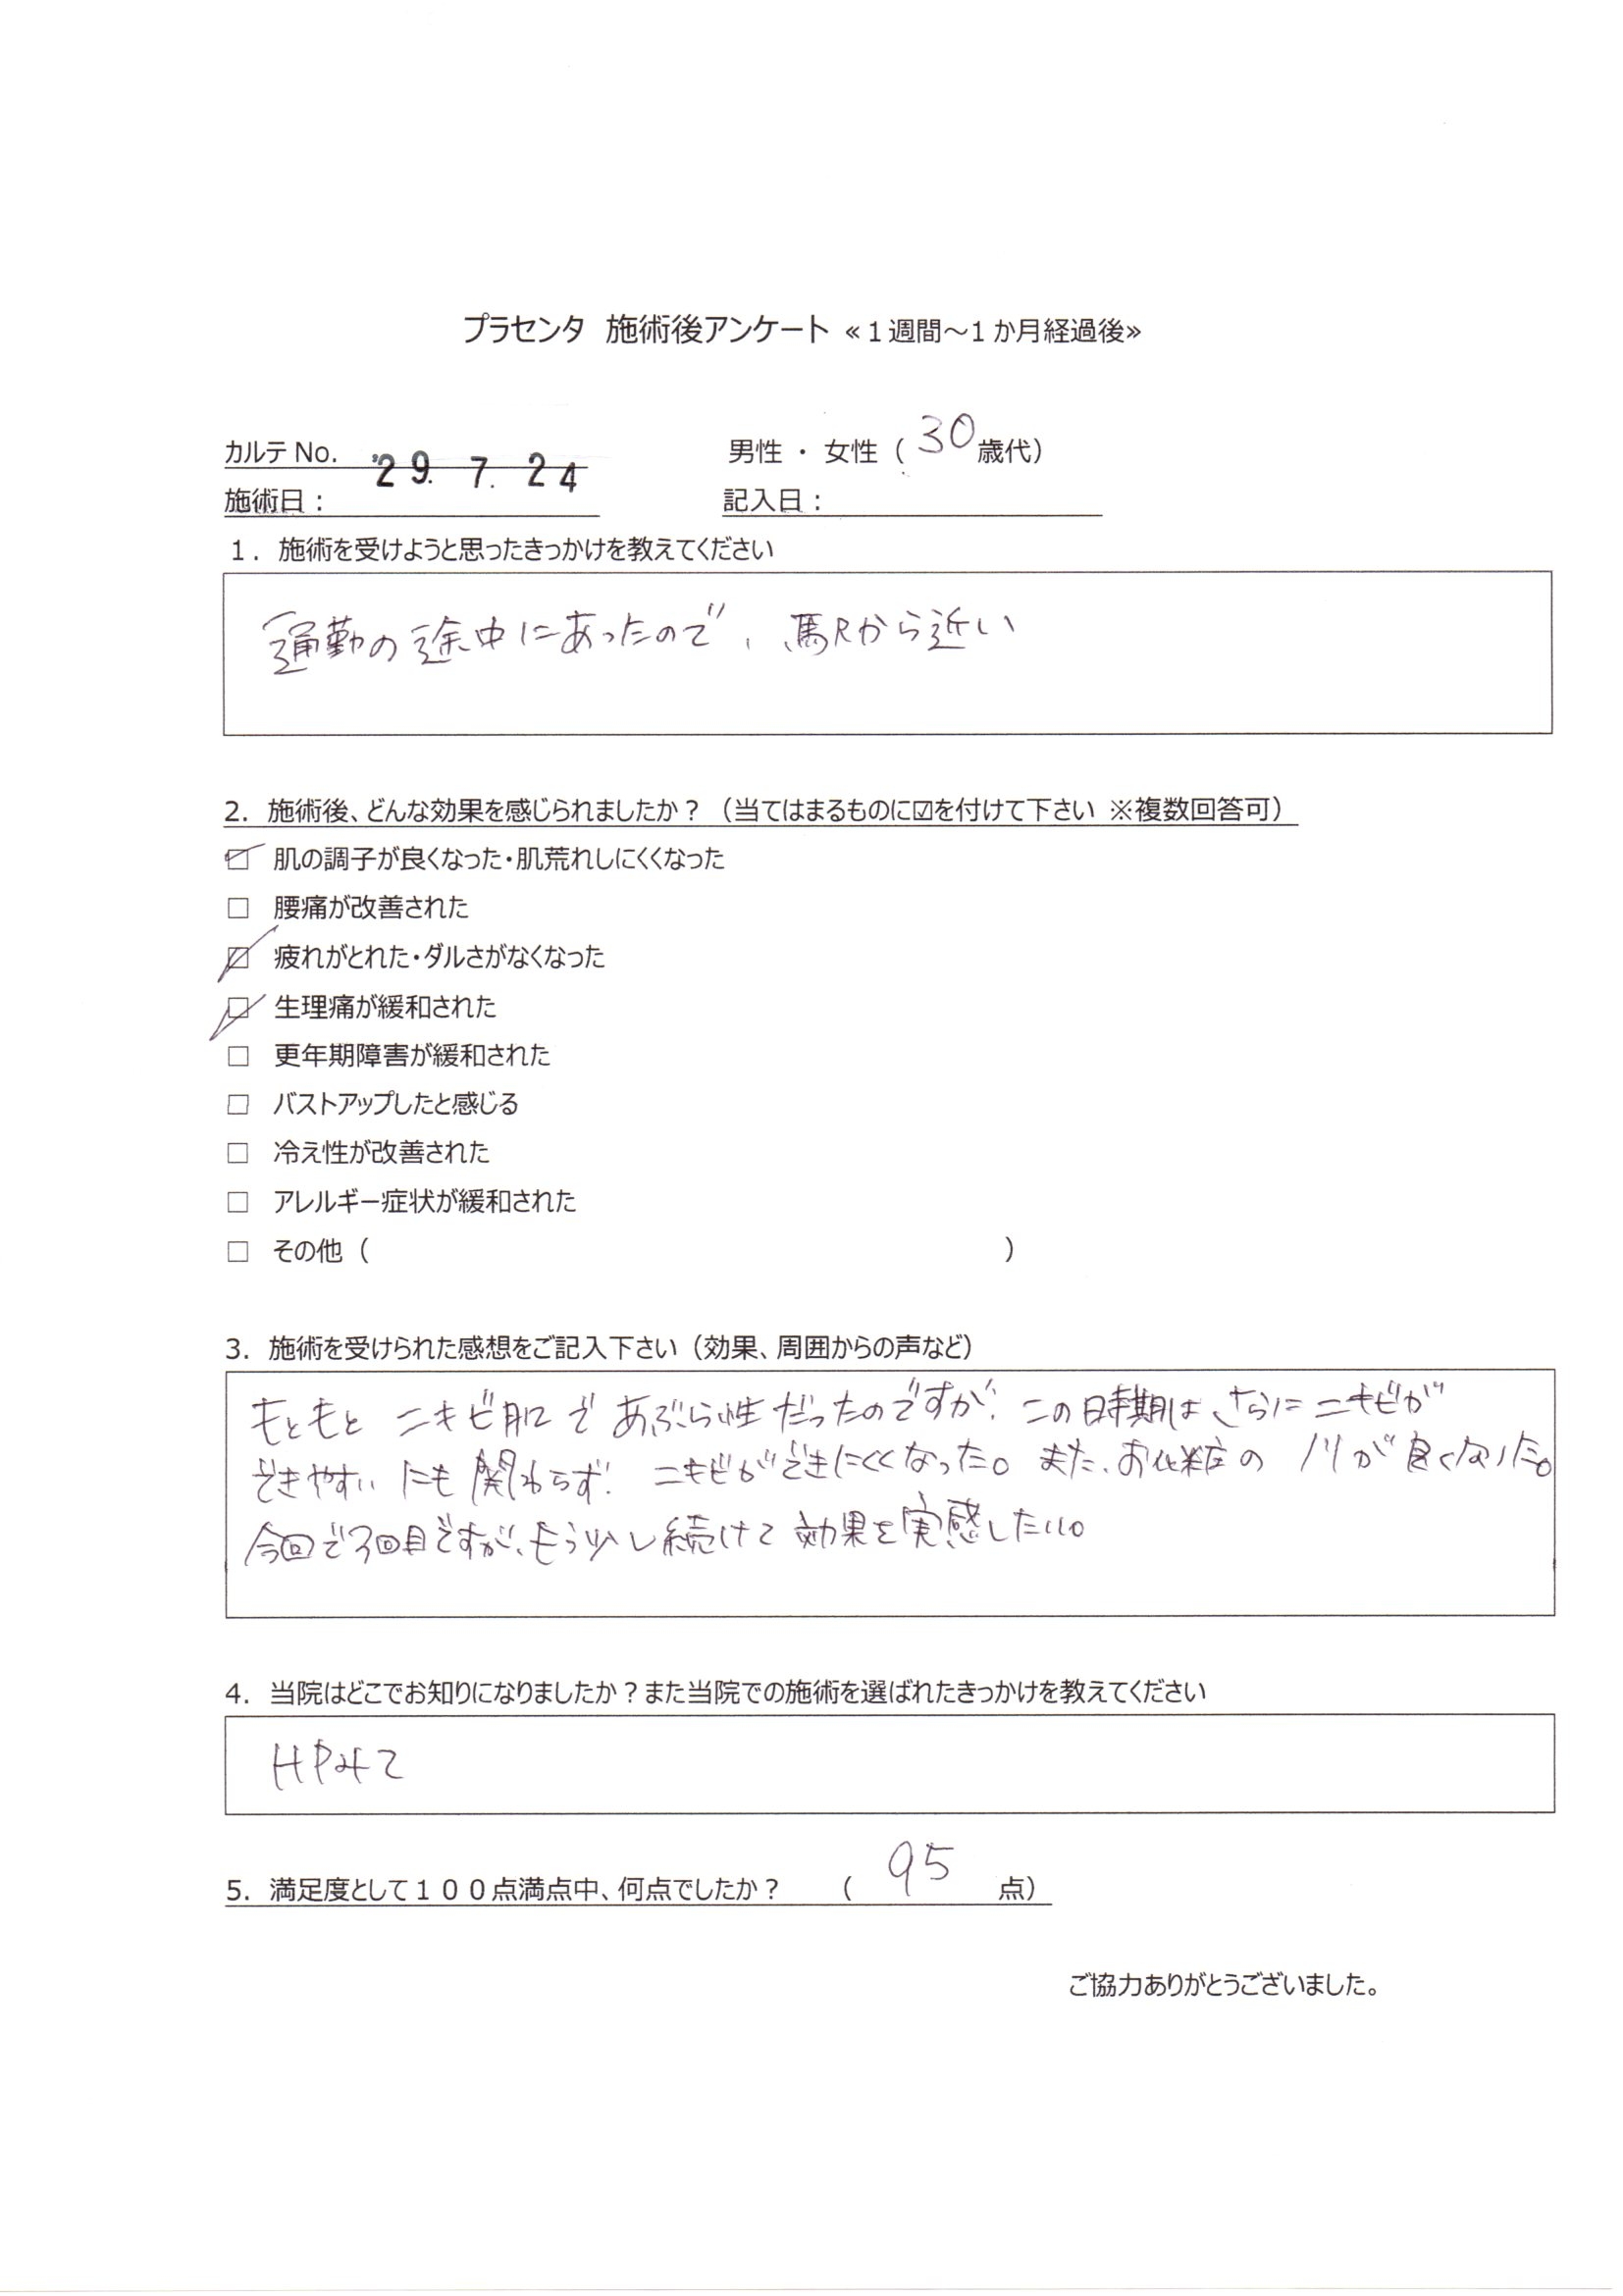 プラセンタ 施術後アンケート ≪１週間～１か月経過後≫
カルテ No. 男性 ・ 女性（ 30 歳代）
'29. 7. 24
施術日： 記入日：
１．施術を受けようと思ったきっかけを教えてください
通勤の途中にあったので、駅から近い
2．施術後、どんな効果を感じられましたか？（当てはまるものに☑を付けて下さい ※複数回答可）
☑ 肌の調子が良くなった・肌荒れしにくくなった
□ 腰痛が改善された
☑ 疲れがとれた・ダルさがなくなった
☑ 生理痛が緩和された
□ 更年期障害が緩和された
□ バストアップしたと感じる
□ 冷え性が改善された
□ アレルギー症状が緩和された
□ その他（ ）
3．施術を受けられた感想をご記入下さい（効果、周囲からの声など）
もともと ニキビ肌で あぶら性だったのですが、この時期は さらに ニキビが
できやすい にも 関わらず、ニキビができにくくなった。また、お化粧の ノリが 良くなった。
今回で3回目ですが、もう少し続けて 効果を実感したい。
4．当院はどこでお知りになりましたか？また当院での施術を選ばれたきっかけを教えてください
HPみて
5．満足度として１００点満点中、何点でしたか？ （ 95 点）
ご協力ありがとうございました。